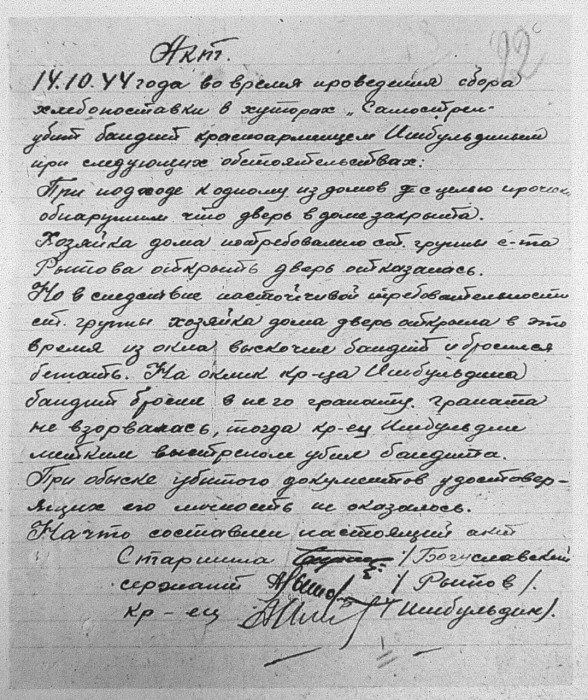 22
Акт.
14.10.44 года во время проведения сбора
хлебопоставки в хуторах „Самострел-
убит бандит красноармейцем Ишбульдиным
при следующих обстоятельствах:
При подходе к одному из домов с целью
обнаружили что дверь в доме закрыта.
Хозяйка дома потребованию ст. группы с-та
Рытова открыть дверь отказалась.
Но в следствие настойчивой требовательности
ст. группы хозяйка дома дверь открыла в это
время из окна выскочил бандит и бросился
бежать. На оклик кр-ца Ишбульдина
бандит бросил в него гранату. граната
не взорвалась, тогда кр-ец Ишбульдин
метким выстрелом убил бандита.
При обыске убитого документов удостовер-
ящих его личность не оказалось.
На что составлен настоящий акт
Старшина / Богуславский
сержант / Рытов /.
кр-ец / Ишбульдин /.